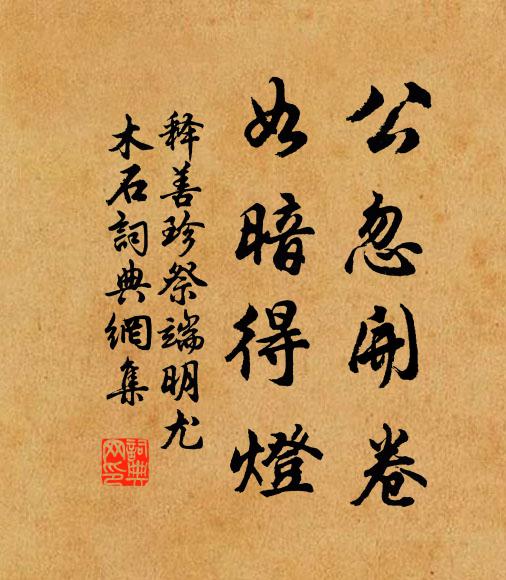 公忽開卷
如暗得燈
释善珍祭端明尤
木石詞典網集
詞典网印